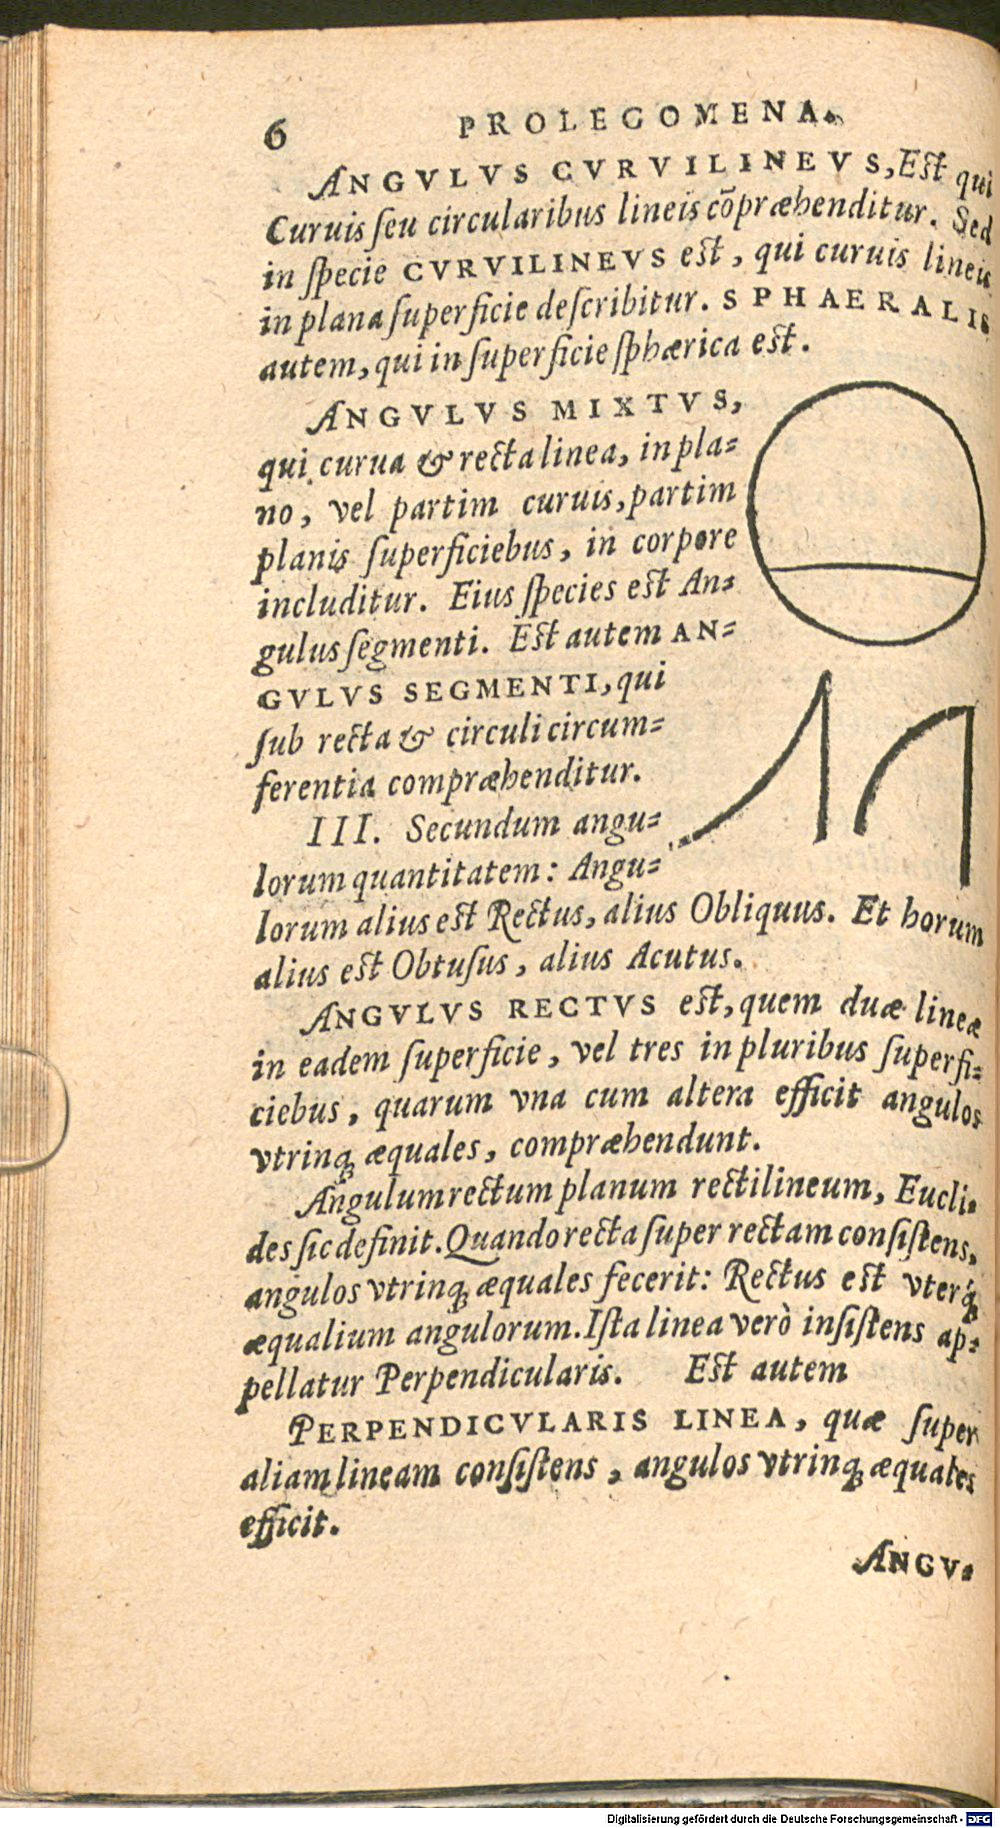 6 PROLEGOMENA.
ANGVLVS CVRVILINEVS, Est qui
Curuis ſeu circularibus lineis cõpræhenditur. Sed
in ſpecie CVRVILINEVS est, qui curuis lineis
in plana ſuperficie deſcribitur. SPHAERALIS
autem, qui in ſuperficie ſphærica est.
ANGVLVS MIXTVS,
qui curua & recta linea, in pla=
no, vel partim curuis, partim
planis ſuperficiebus, in corpore
includitur. Eius ſpecies est An=
gulus ſegmenti. Est autem AN=
GVLVS SEGMENTI, qui
ſub recta & circuli circum=
ferentia compræhenditur.
III. Secundum angu=
lorum quantitatem: Angu=
lorum alius est Rectus, alius Obliquus. Et horum
alius est Obtuſus, alius Acutus.
ANGVLVS RECTVS est, quem duæ lineæ
in eadem ſuperficie, vel tres in pluribus ſuperfi=
ciebus, quarum vna cum altera efficit angulos
vtrinq; æquales, compræhendunt.
Angulum rectum planum rectilineum, Eucli=
des ſic definit. Quando recta ſuper rectam conſiſtens,
angulos vtrinq; æquales fecerit: Rectus est vterq́;
æqualium angulorum. Iſta linea verò inſiſtens ap=
pellatur Perpendicularis. Est autem
PERPENDICVLARIS LINEA, quæ ſuper
aliam lineam conſiſtens, angulos vtrinq; æquales
efficit.
ANGV=
Digitalisierung gefördert durch die Deutsche Forschungsgemeinschaft - DFG